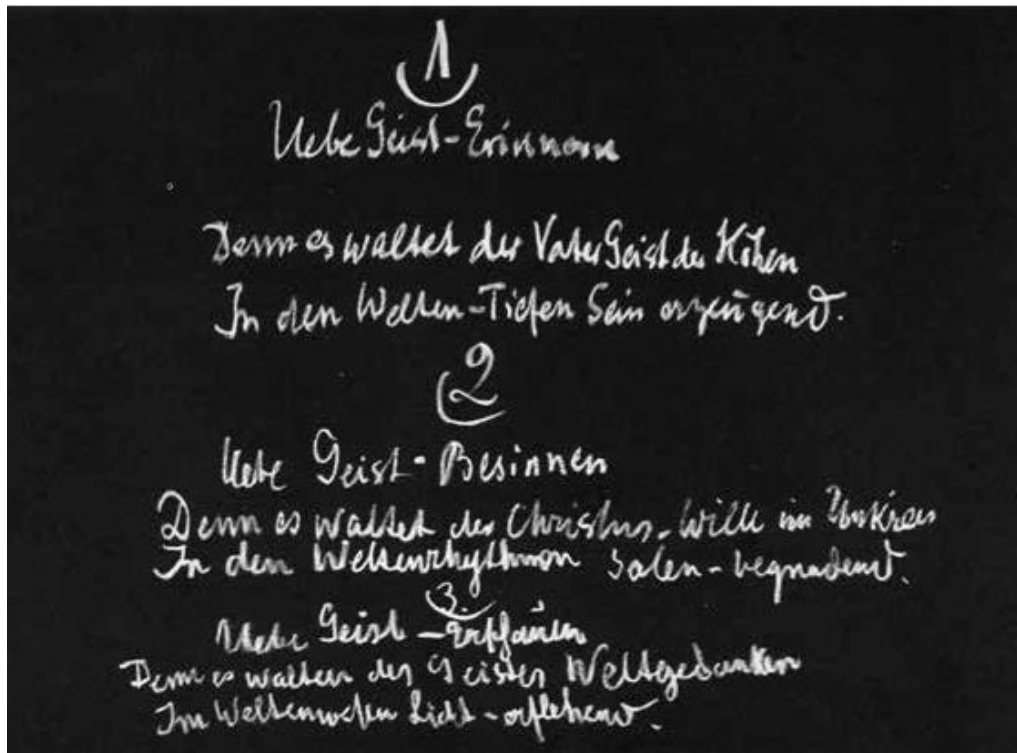 1
Uebe Geist-Erinnern
Denn es waltet der Vater Geist der Höhen
In den Welten-Tiefen Sein erzeugend.
2
Uebe Geist-Besinnen
Denn es waltet der Christus-Wille im Umkreis
In den Weltenrhythmen Selen-begnadend.
3.
Uebe Geist-Erschauen
Denn es walten des Geistes Weltgedanken
Im Weltenwesen Licht-erflehend.